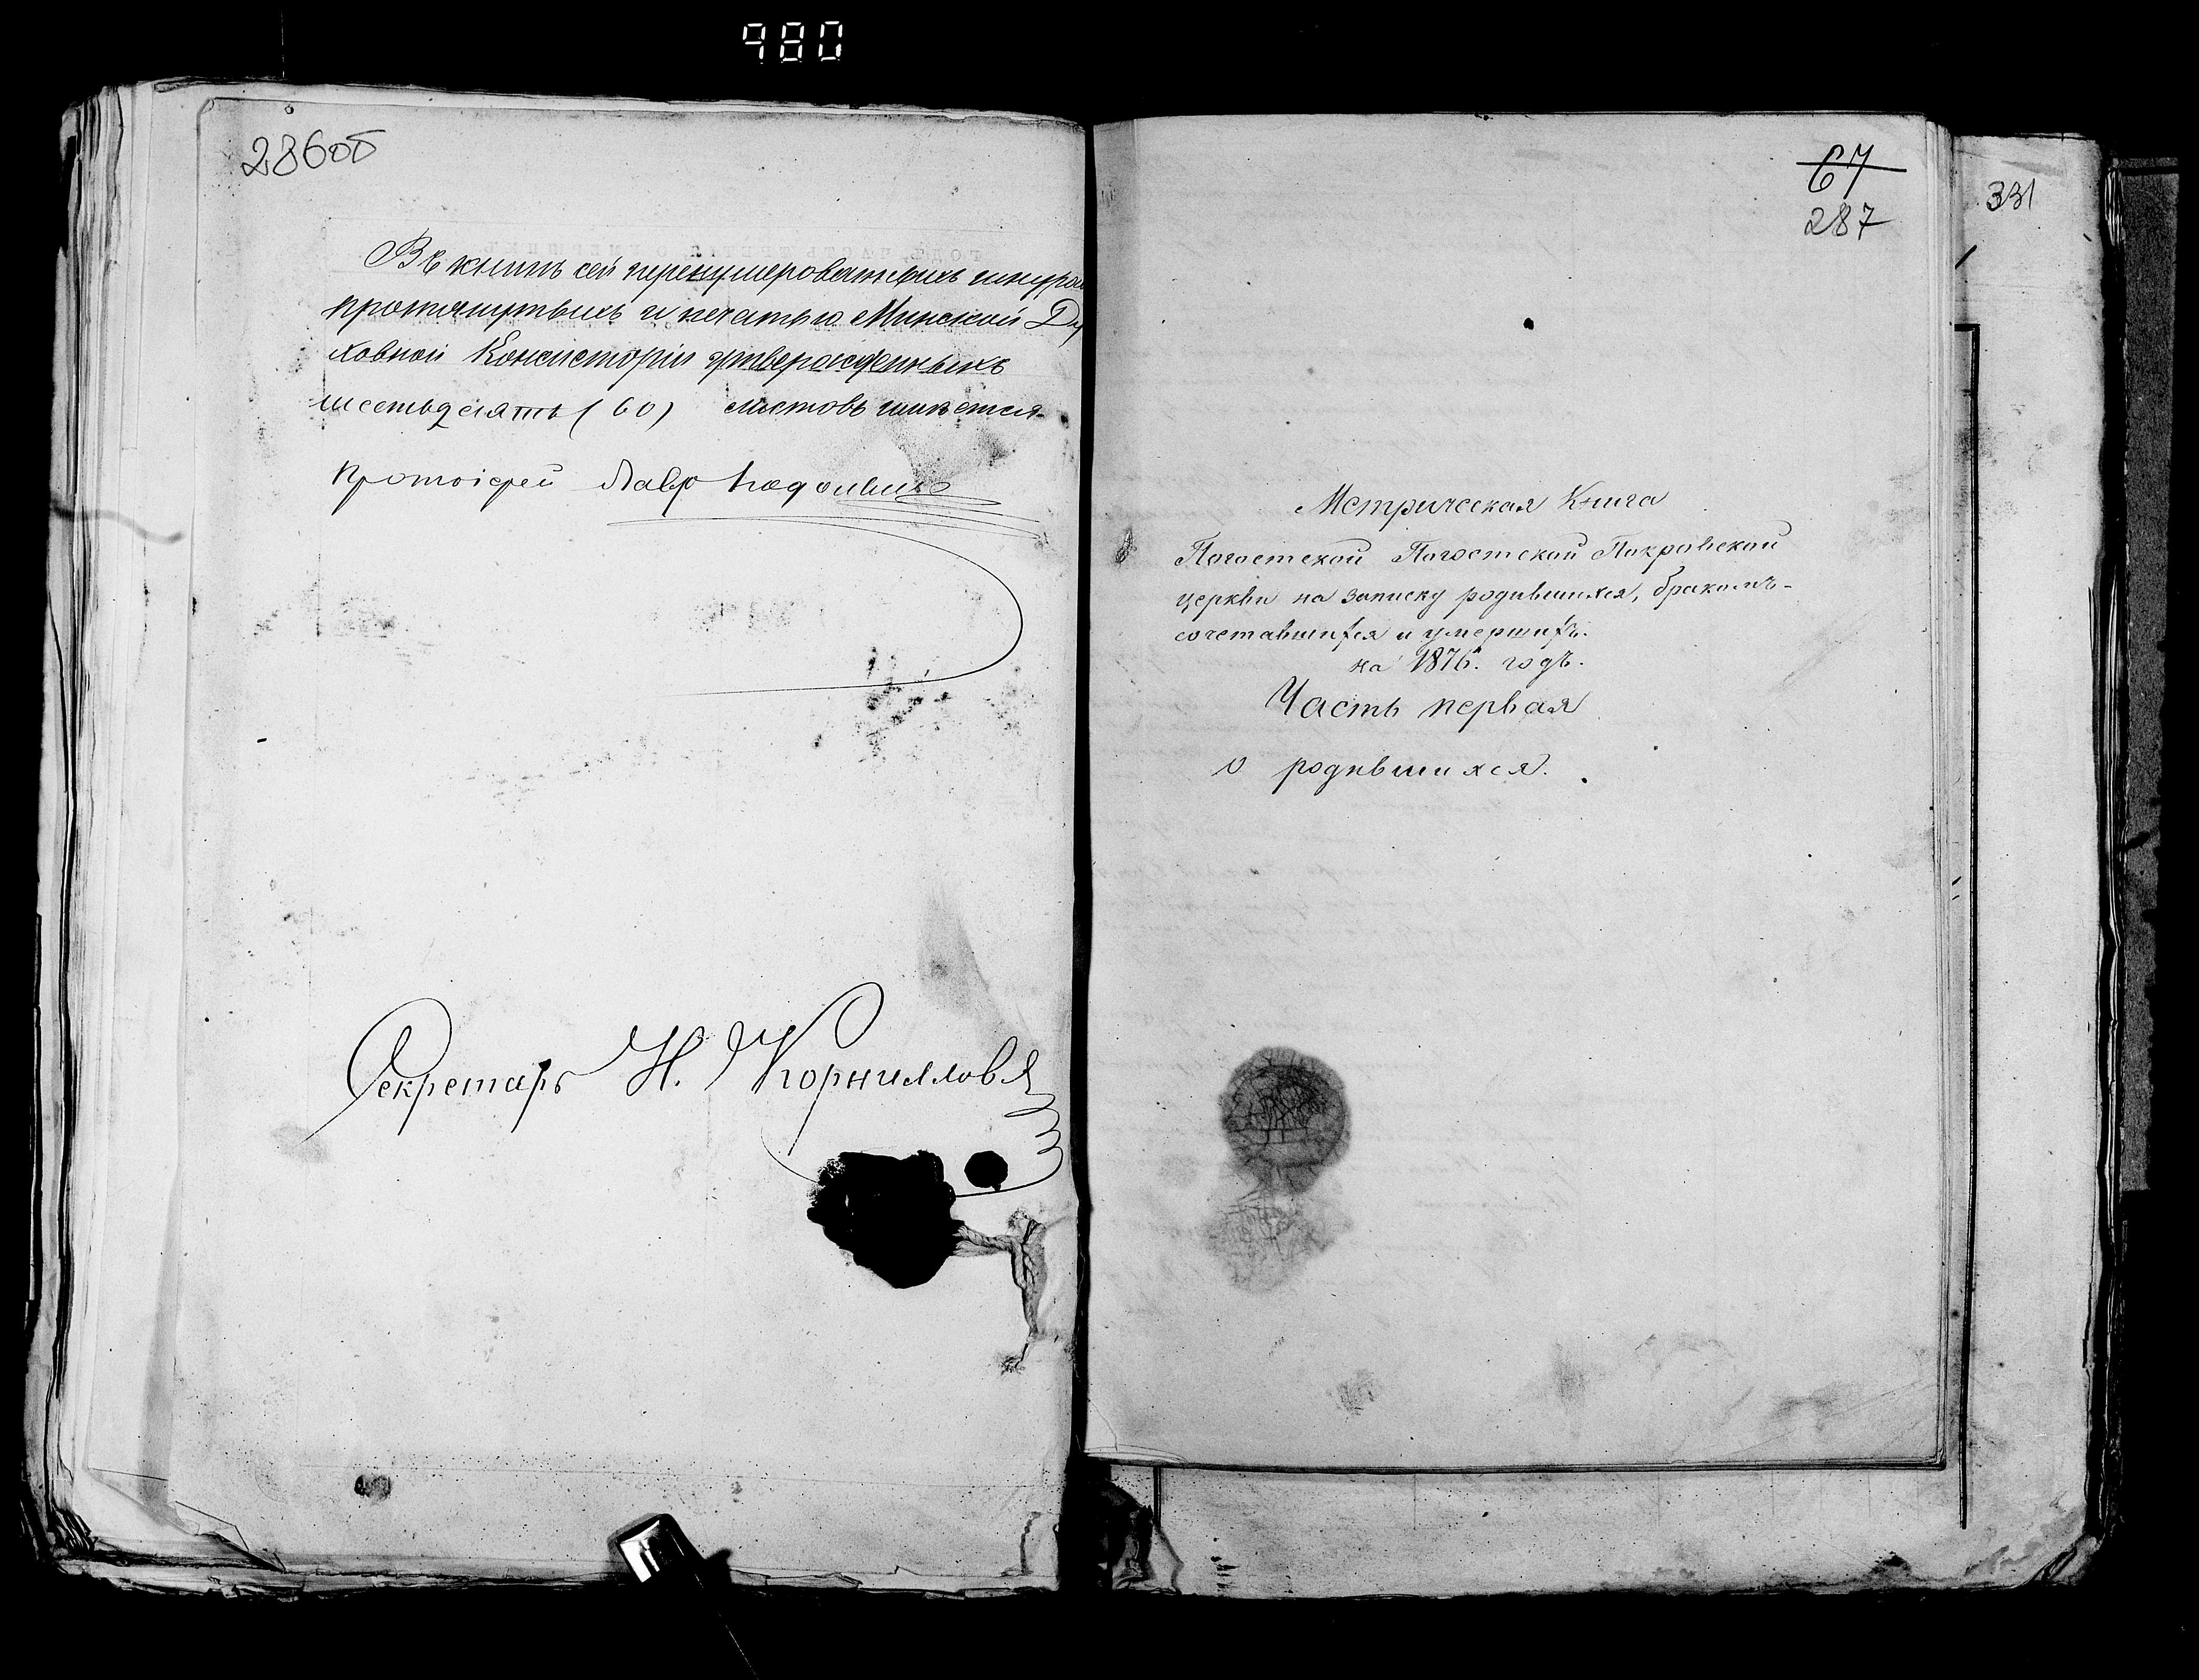 980
286об
Въ книгѣ сей перенумерованныхъ шнуром
протянутыхъ и печатью Минской Ду
ховной Консисторіи утвержденныхъ
шестьдесятъ (60) листовъ имѣется
Протоіерей Лавр
Секретарь Н. Корниловъ
67
287
331
Метрическая Книга
Погостской Погостской Покровской
церкви на записку родившихся, бракомъ-
сочетавшихся и умершихъ.
на 1876. годъ.
Часть первая
о родившихся.